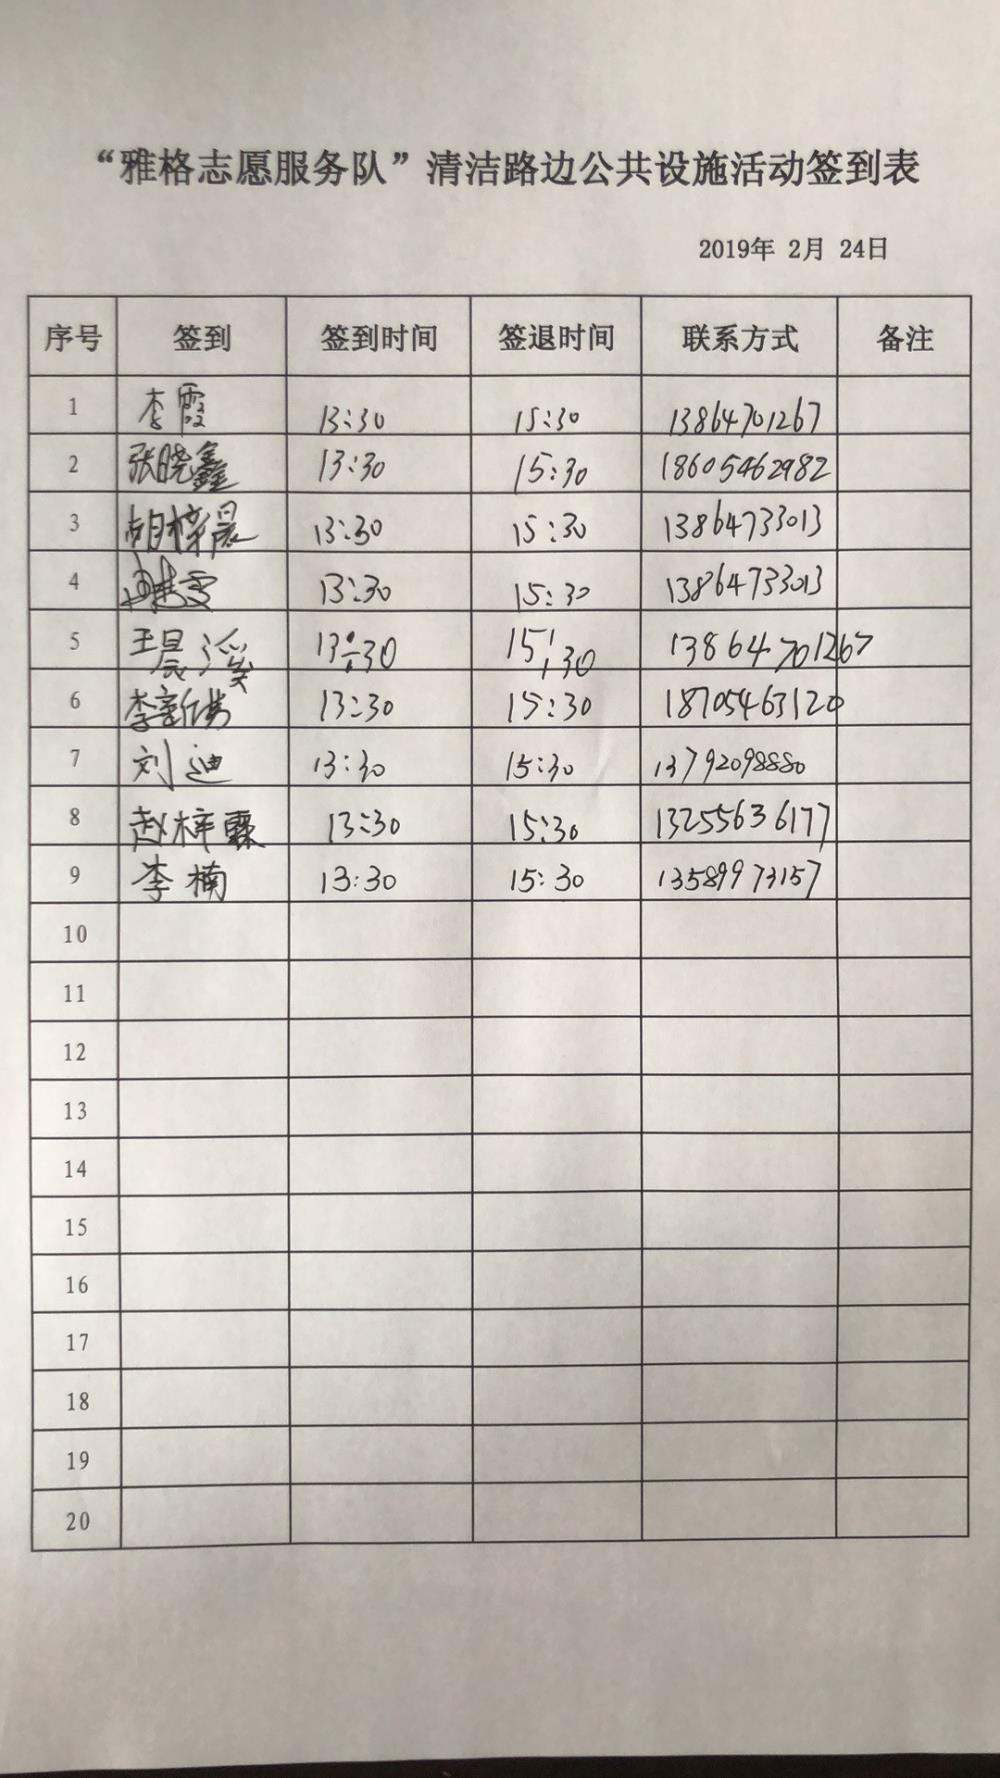 “雅格志愿服务队”清洁路边公共设施活动签到表
2019年 2月 24日
序号 签到 签到时间 签退时间 联系方式 备注
1 李霞 13:30 15:30 13864701267
2 张晓鑫 13:30 15:30 18605462982
3 胡梓晨 13:30 15:30 13864733013
4 13:30 15:30 13864733013
5 王晨溪 13:30 15:30 13864701267
6 李 13:30 15:30 18705463120
7 刘迪 13:30 15:30 13792098880
8 赵梓霖 13:30 15:30 13255636177
9 李楠 13:30 15:30 13589973157
10
11
12
13
14
15
16
17
18
19
20